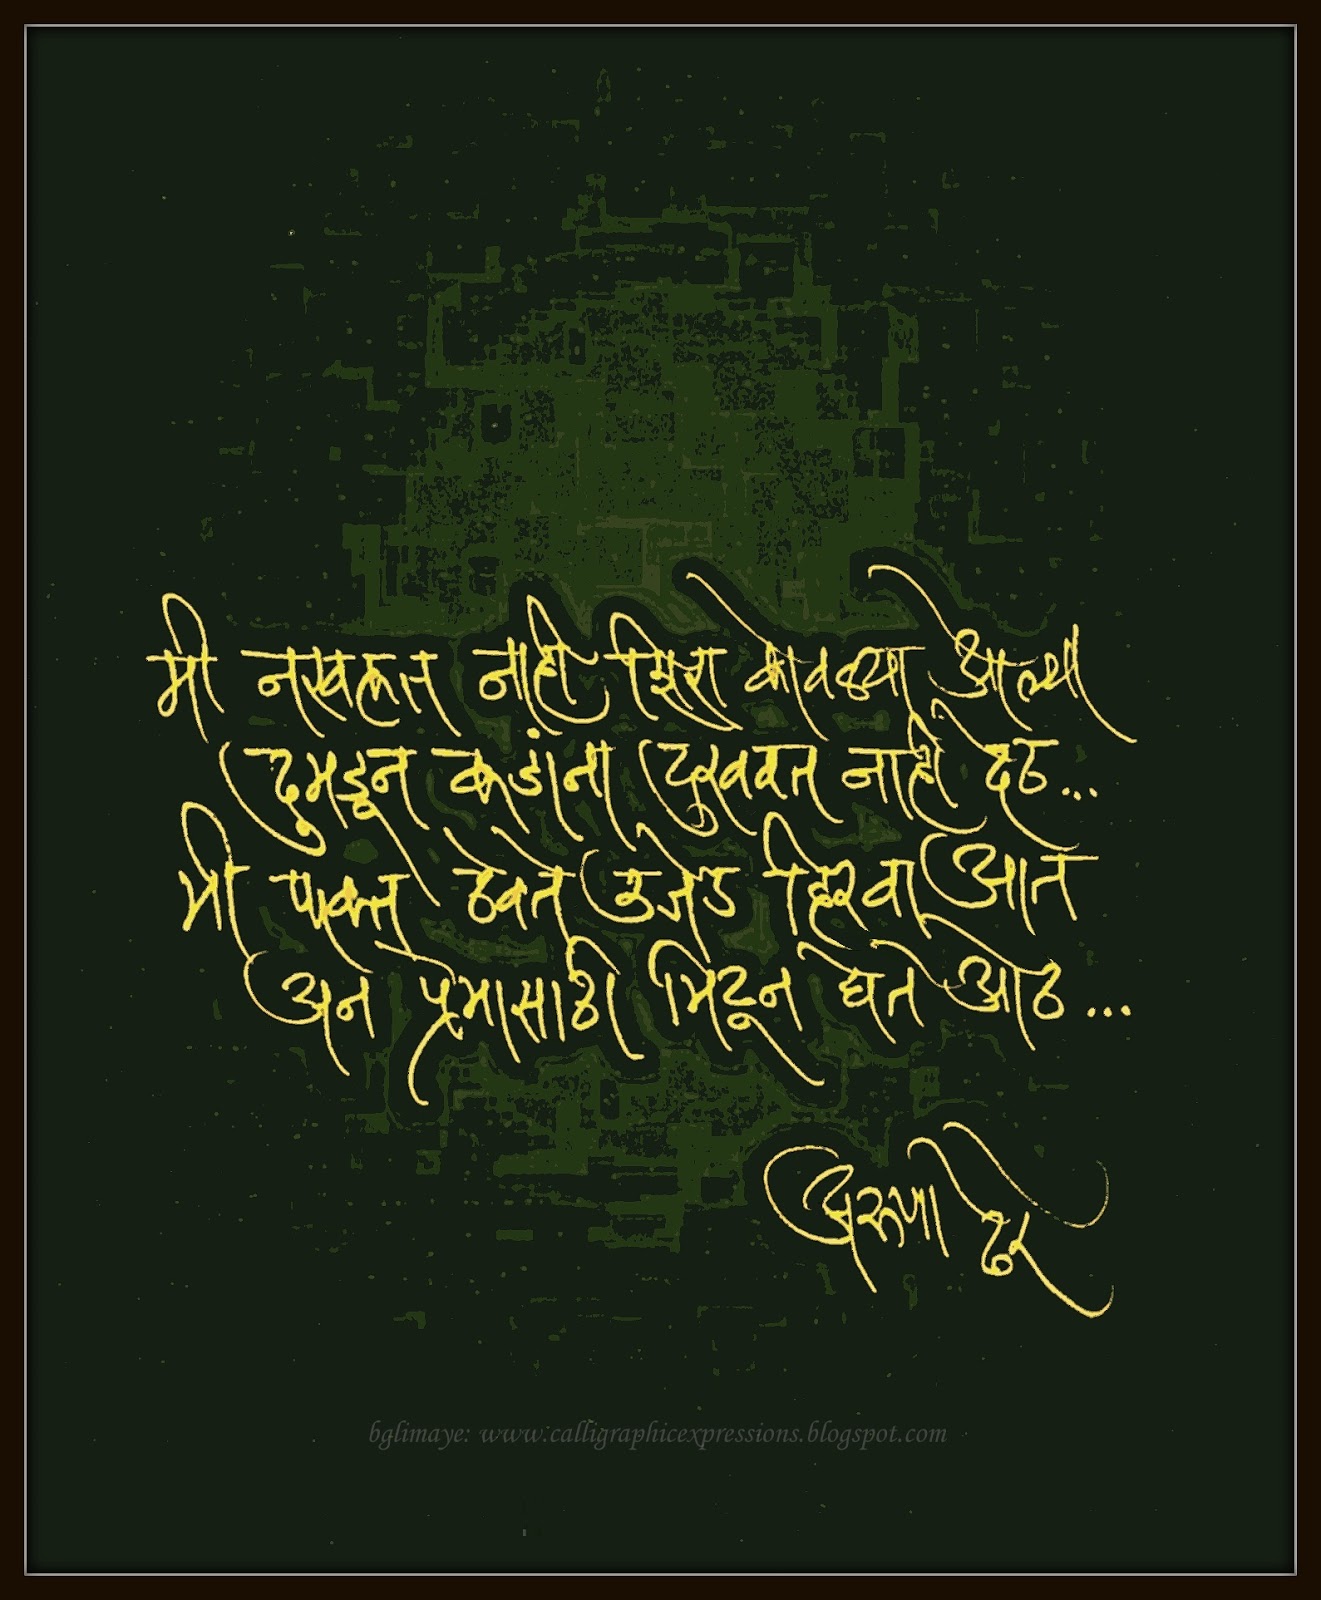 मी नखलत नाही शिरा कोवळ्या ओल्या
दुमडून कडांना दुखवत नाही देठ...
मी फक्त ठेवते उजेड हिरवा आत
अन प्रेमासाठी मिटून घेते ओठ...
अरुणा ढेरे
bglimaye: www.calligraphicexpressions.blogspot.com